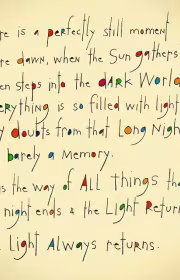 re is a perfectly still moment
re dawn, when the Sun gathers
en steps into the dark World
erything is so filled with light
y doubts from that Long Nigh
barely a memory.
s the way of All things tha
night ends & the Light Retur
Light Always returns.